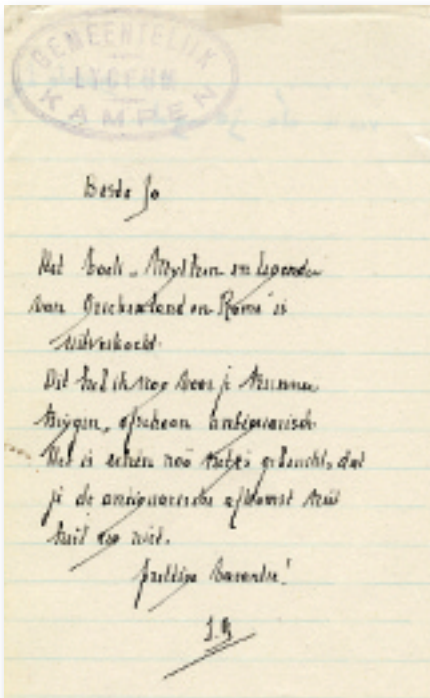 GEMEENTELIJK
LYCEUM
KAMPEN
Beste Jo
Het boek "Mythen en legenden
van Griekenland en Rome" is
uitverkocht.
Dit heb ik nog voor je kunnen
krijgen, ofschoon antiquarisch.
Het is echter nog netjes gebeurd, dat
je de antiquarische afkomst
niet.
prettige vacantie!